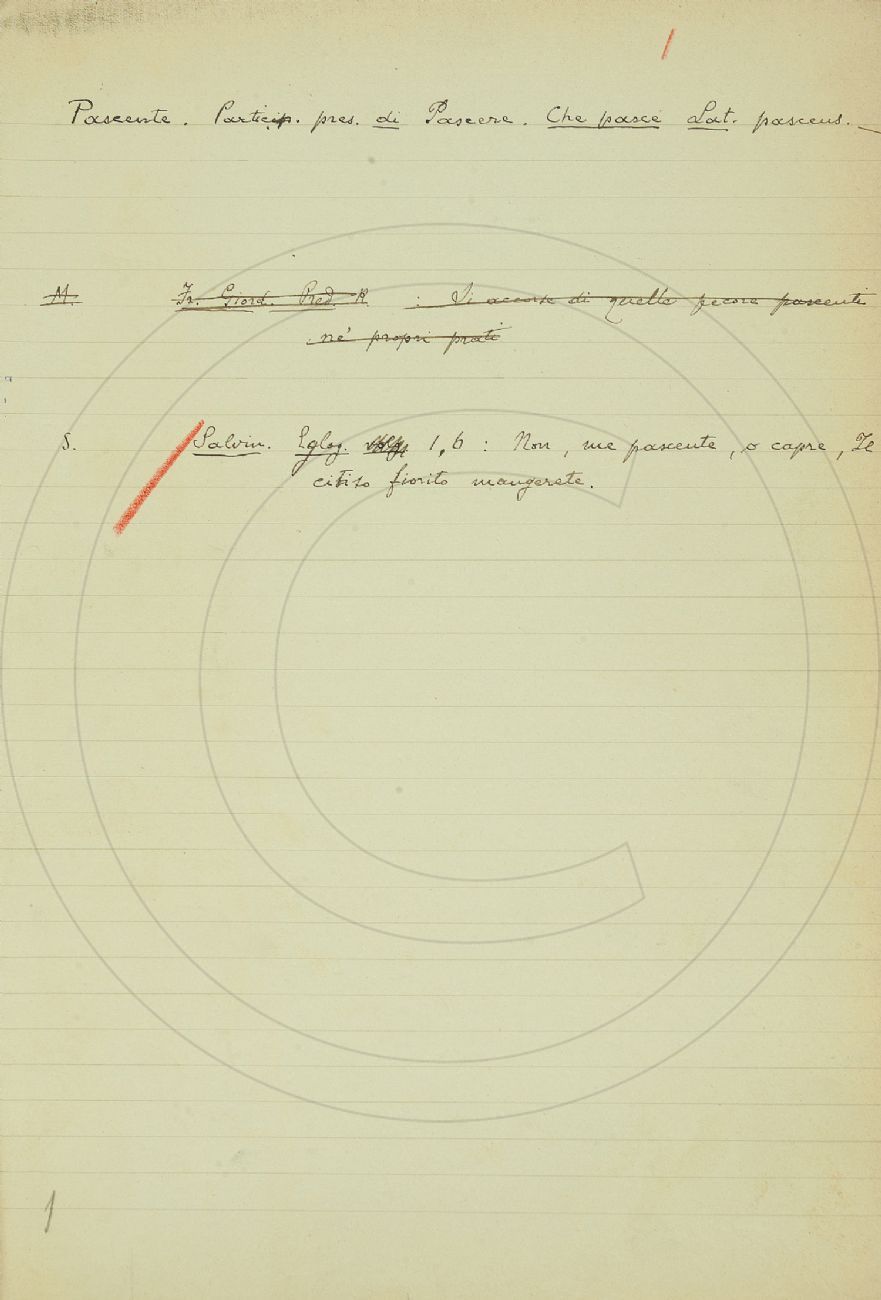 1
Pascente. Particip. pres. di Pascere. Che pasce Lat. pascens. —
M. Fr. Giord. Pred. R. : Si accorse di quelle pecore pascenti
ne' propri prati
S. Salvin. Eglog. 1, 6 : Non, me pascente, o capre, Il
citiso fiorito mangerete.
1